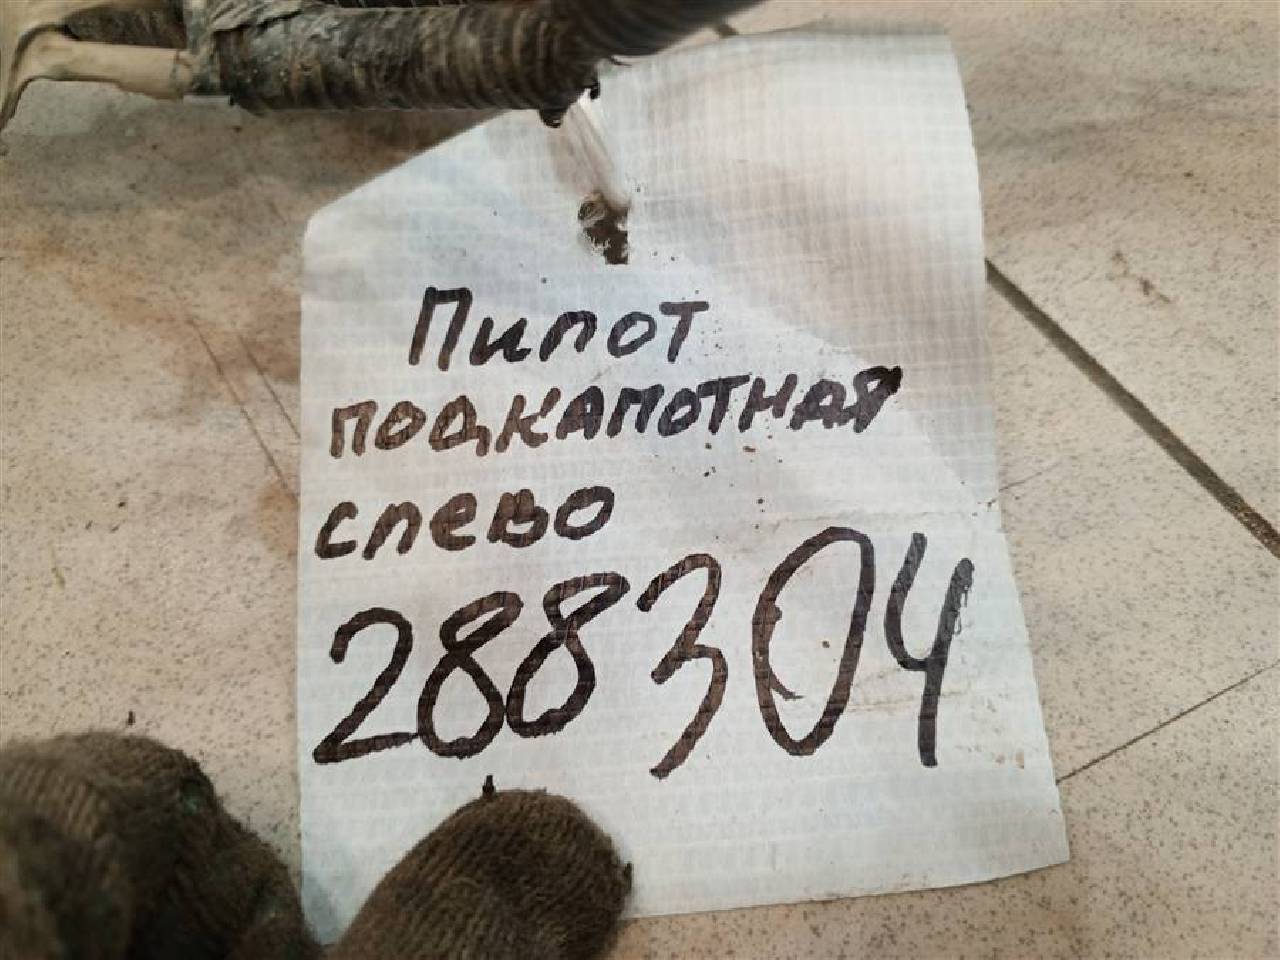 Пилот
подкапотная
слево
288304